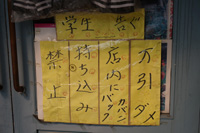 学生 告ぐ
万引ダメ
店内にカバン
バック
持ち込み
禁止